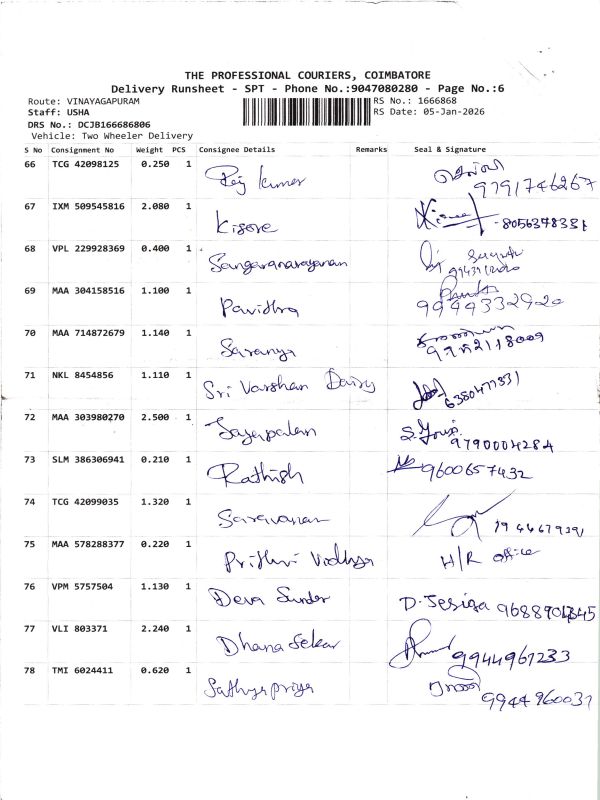 THE PROFESSIONAL COURIERS, COIMBATORE
Delivery Runsheet - SPT - Phone No.:9047080280 - Page No.:6
Route: VINAYAGAPURAM RS No.: 1666868
Staff: USHA RS Date: 05-Jan-2026
DRS No.: DCJB166686806
Vehicle: Two Wheeler Delivery
S No Consignment No Weight PCS Consignee Details Remarks Seal & Signature
66 TCG 42098125 0.250 1 Raj Kumar
9791746267
67 IXM 509545816 2.080 1 Kisore 8056378331
68 VPL 229928369 0.400 1 Sangaranarayanan
69 MAA 304158516 1.100 1 Pavidhra
99449332920
70 MAA 714872679 1.140 1 Saranya
71 NKL 8454856 1.110 1 Sri Varshan Dairy
72 MAA 303980270 2.500 1 Jayapalan
9790004284
73 SLM 386306941 0.210 1 Rathish 9600657432
74 TCG 42099035 1.320 1 Saravanan
75 MAA 578288377 0.220 1 Prithvi Vidhya H/R office
76 VPM 5757504 1.130 1 Deva Sunder D. Jesiga
77 VLI 803371 2.240 1 Dhana Sekar 9944967233
78 TMI 6024411 0.620 1 Sathyapriya
9944960031